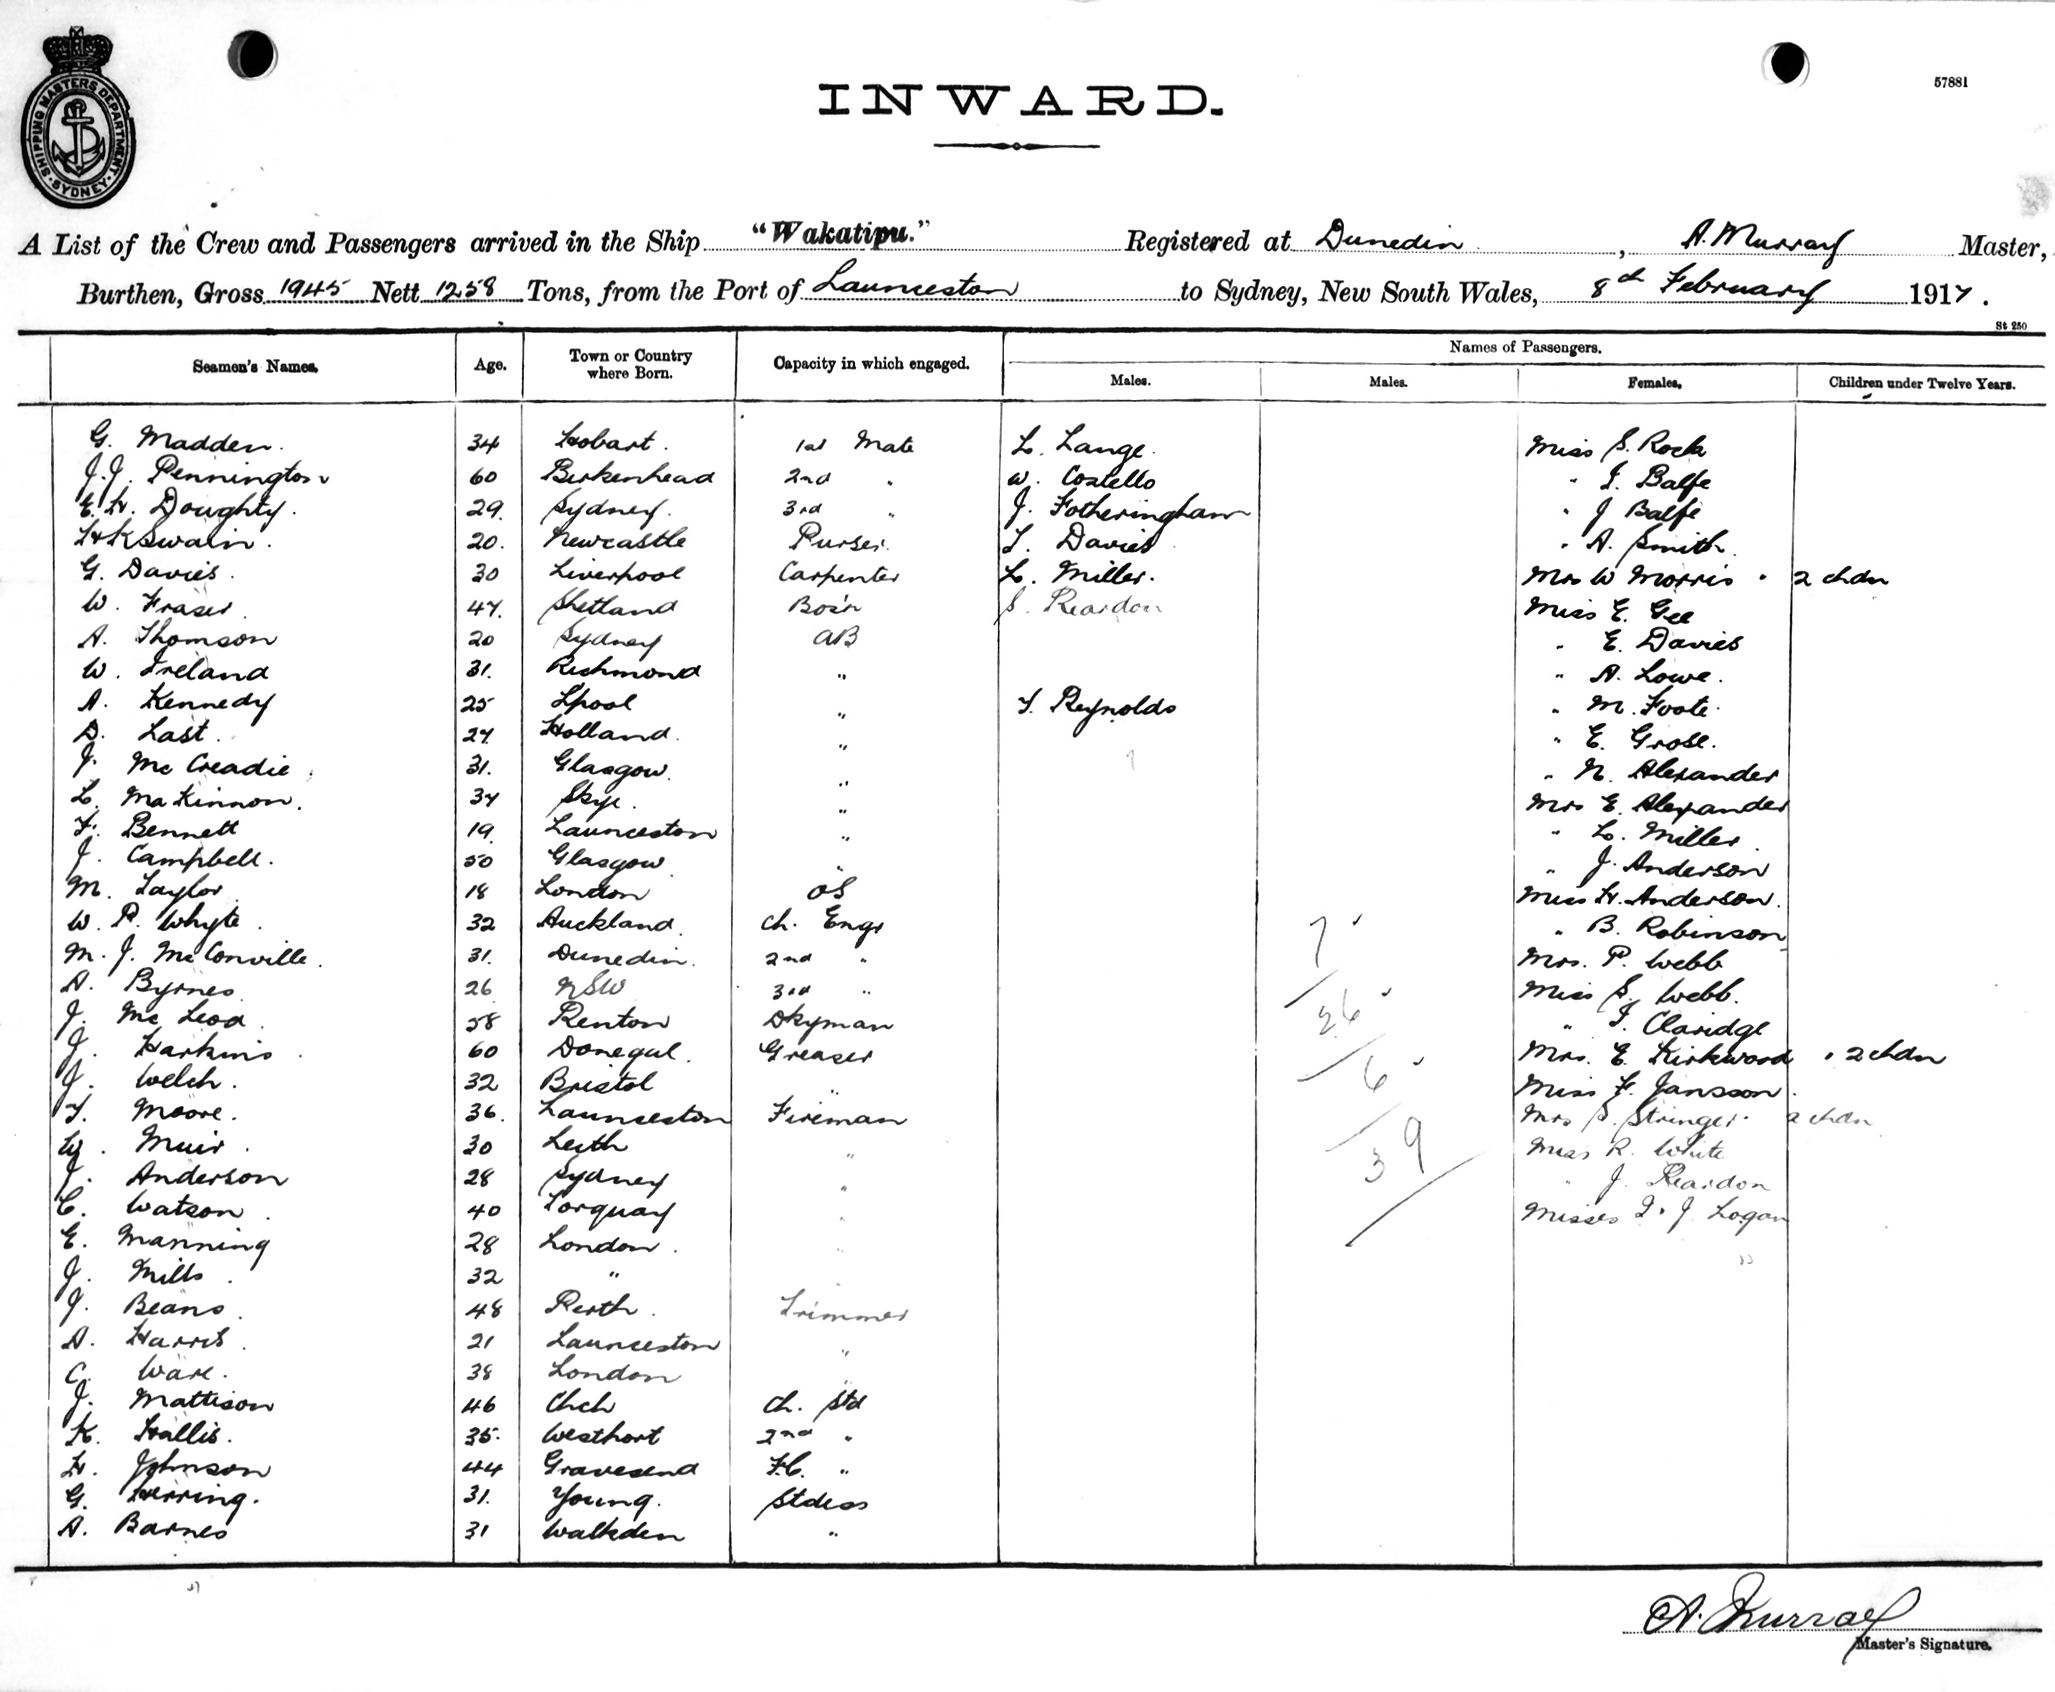 SHIPPING MASTERS DEPARTMENT
SYDNEY
57881
INWARD.
A List of the Crew and Passengers arrived in the Ship "Wakatipu." Registered at Dunedin, A. Murray Master,
Burthen, Gross 1945 Nett 1258 Tons, from the Port of Launceston to Sydney, New South Wales, 8th February 1917.
St 250
Seamen's Names. Age. Town or Country where Born. Capacity in which engaged. Names of Passengers.
Males. Males. Females. Children under Twelve Years.
G. Madden. 34 Hobart. 1st Mate L. Lange. Miss S. Rock
J.J. Pennington 60 Birkenhead 2nd " W. Costello " I. Balfe
E.H. Doughty. 29. Sydney. 3rd " J. Fotheringham " J Balfe
H K Swain. 20. Newcastle Purser. T. Davies " A. Smith.
G. Davies. 30 Liverpool Carpenter L. Miller. Mrs W Morris . 2 chdn
W. Fraser. 47. Shetland Bos'n S. Reardon Miss E. Gee
A. Thomson 20 Sydney AB " E. Davies
W. Ireland 31. Richmond " " A. Lowe.
A. Kennedy 25 Lpool " T. Reynolds " M. Foote.
D. Last. 27. Holland. " " E. Grose.
J. McCreadie. 31. Glasgow. " " N. Alexander
L. MaKinnon. 37 Skye. " Mrs E. Alexander
F. Bennett 19. Launceston " " L. Miller.
J. Campbell. 50 Glasgow " " J. Anderson
M. Taylor 18 London OS Miss H. Anderson.
W. P. Whyte. 32 Auckland. Ch. Engr 7 " B. Robinson
M. J. McConville. 31. Dunedin. 2nd " Mrs. P. Webb
A. Byrnes 26 NSW 3rd " 26 Miss S. Webb.
J. McLeod. 58 Renton Dkyman " I. Claridge
J. Harkins. 60 Donegal. Greaser 6 Mrs. E. Kirkwood . 2 chdn
J. Welch. 32 Bristol " Miss F. Jansson.
T. Moore. 36. Launceston Fireman Mrs S. Stringer. 2 chdn
W. Muir. 30 Leith " 39 Miss R. White
J. Anderson 28 Sydney " " J. Reardon
C. Watson. 40 Torquay " Misses I. J. Logan
E. Manning 28 London. "
J. Mills. 32 "
J. Beans. 48 Perth. Trimmer
A. Harris. 21 Launceston "
C. Ware. 38 London "
J. Mattison 46 Chch Ch. Std
K. Hallis. 35. Westport 2nd "
H. Johnson 44 Gravesend F.C. "
G. Herring. 31. Young. Stdess
A. Barnes 31 Walkden "
A. Murray
Master's Signature.